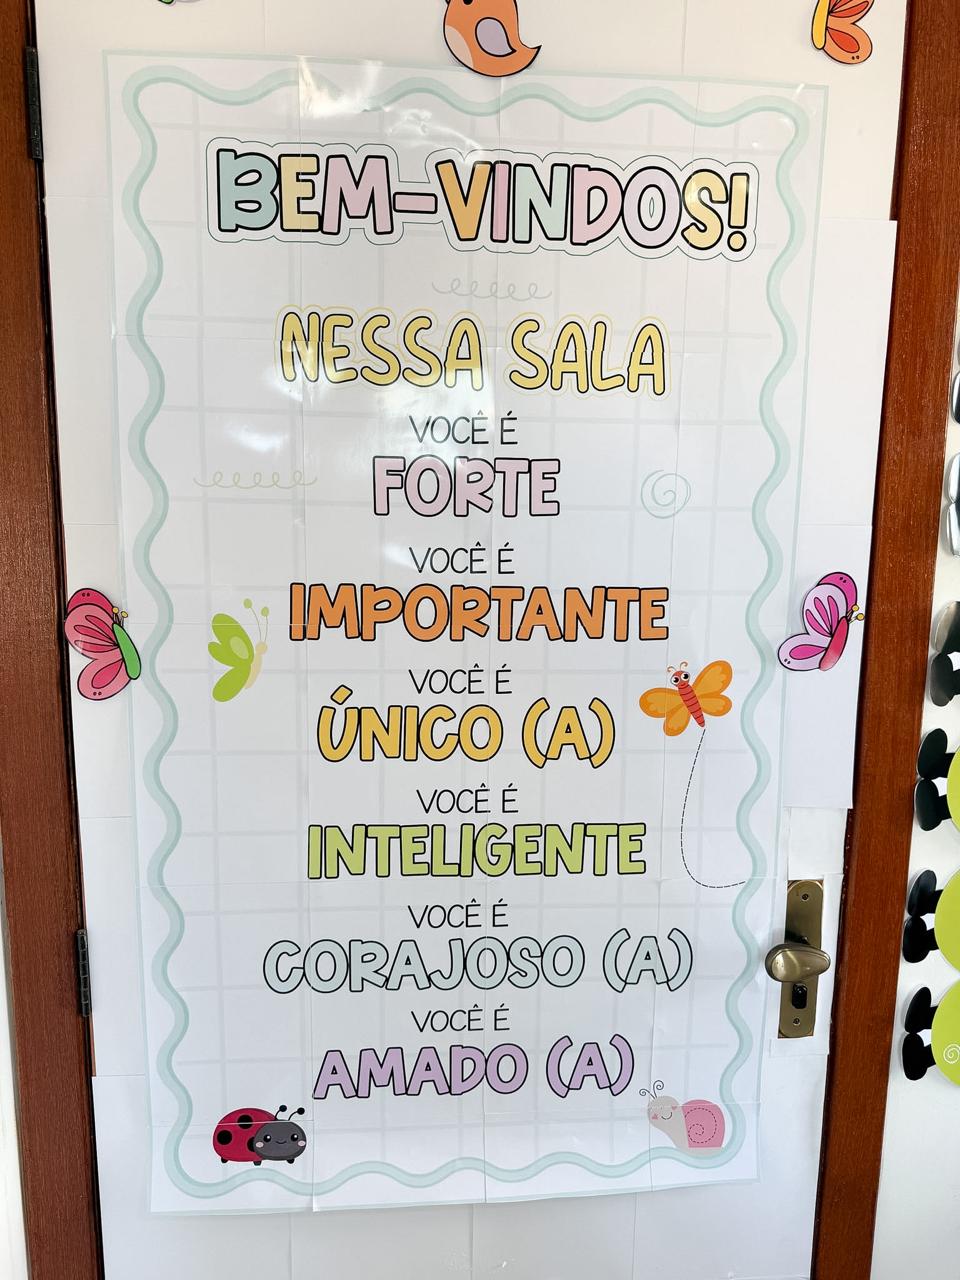 BEM-VINDOS!
NESSA SALA
VOCÊ É
FORTE
VOCÊ É
IMPORTANTE
VOCÊ É
ÚNICO (A)
VOCÊ É
INTELIGENTE
VOCÊ É
CORAJOSO (A)
VOCÊ É
AMADO (A)